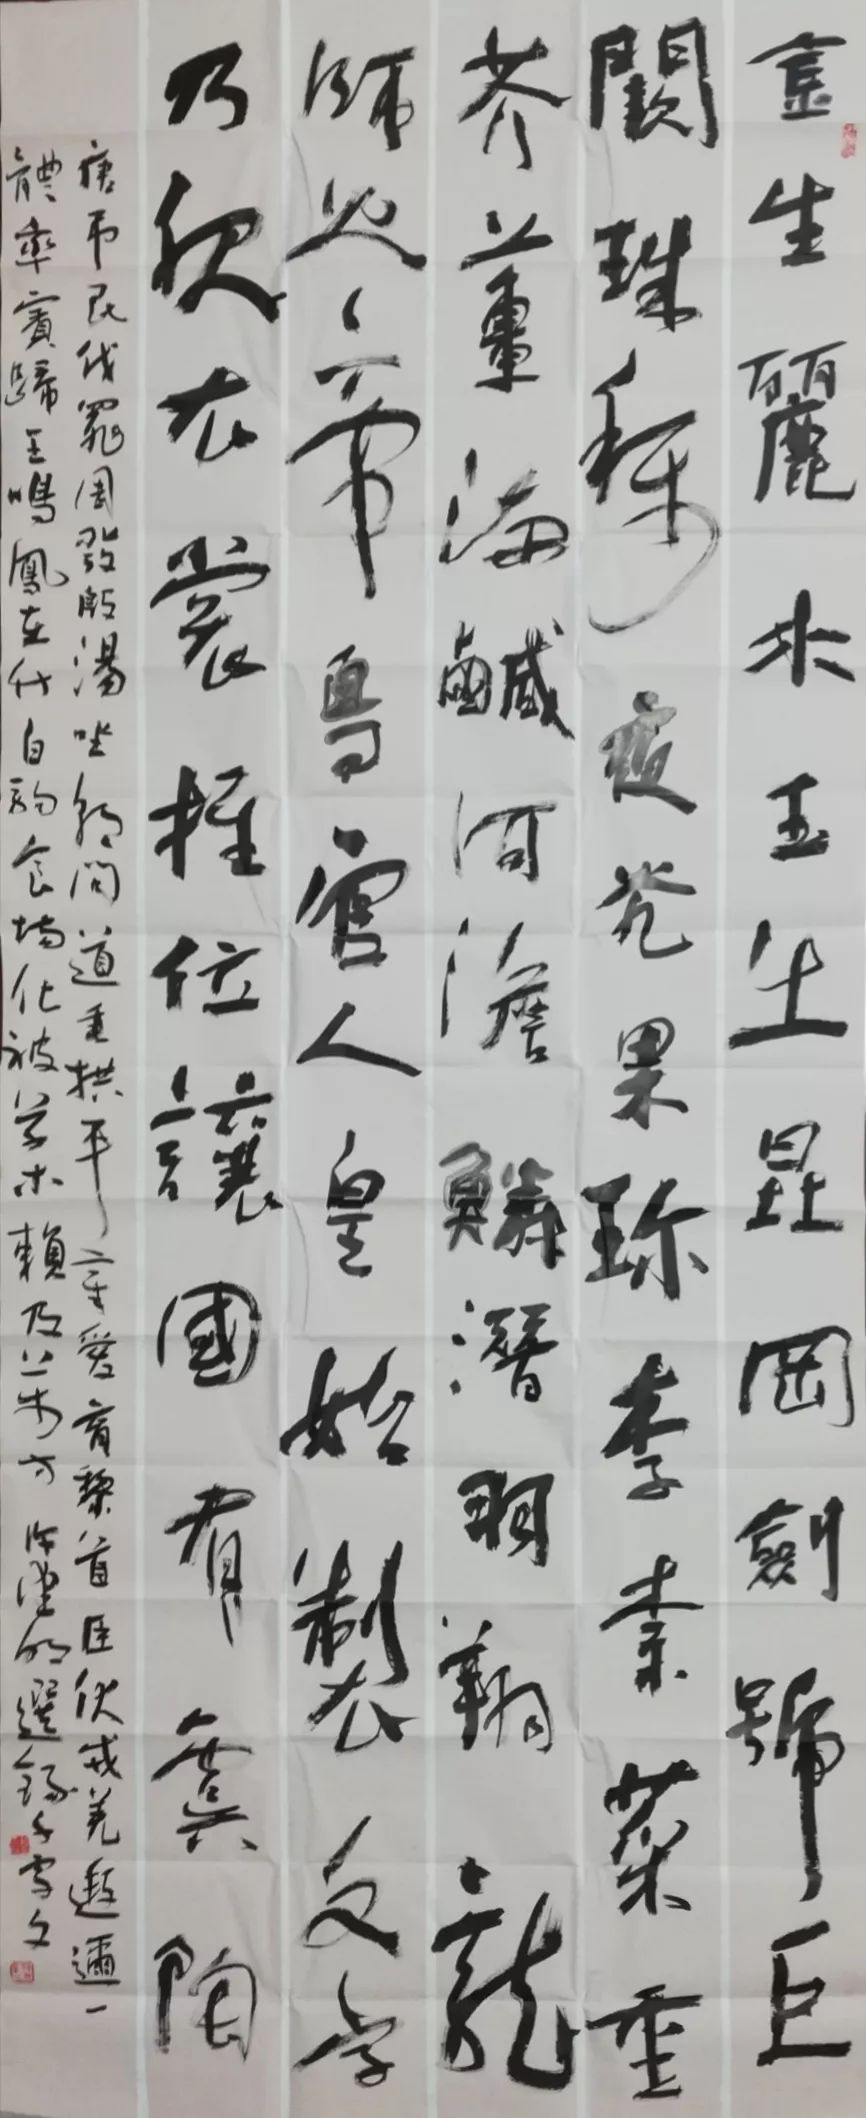 金生麗水玉出崑岡劍號巨
闕珠稱夜光果珍李柰菜重
芥薑海鹹河淡鱗潛羽翔龍
師火帝鳥官人皇始製文字
乃服衣裳推位讓國有虞陶
唐弔民伐罪周發殷湯坐朝問道垂拱平章愛育黎首臣伏戎羌遐邇一
體率賓歸王鳴鳳在竹白駒食場化被草木賴及萬方 選錄千字文